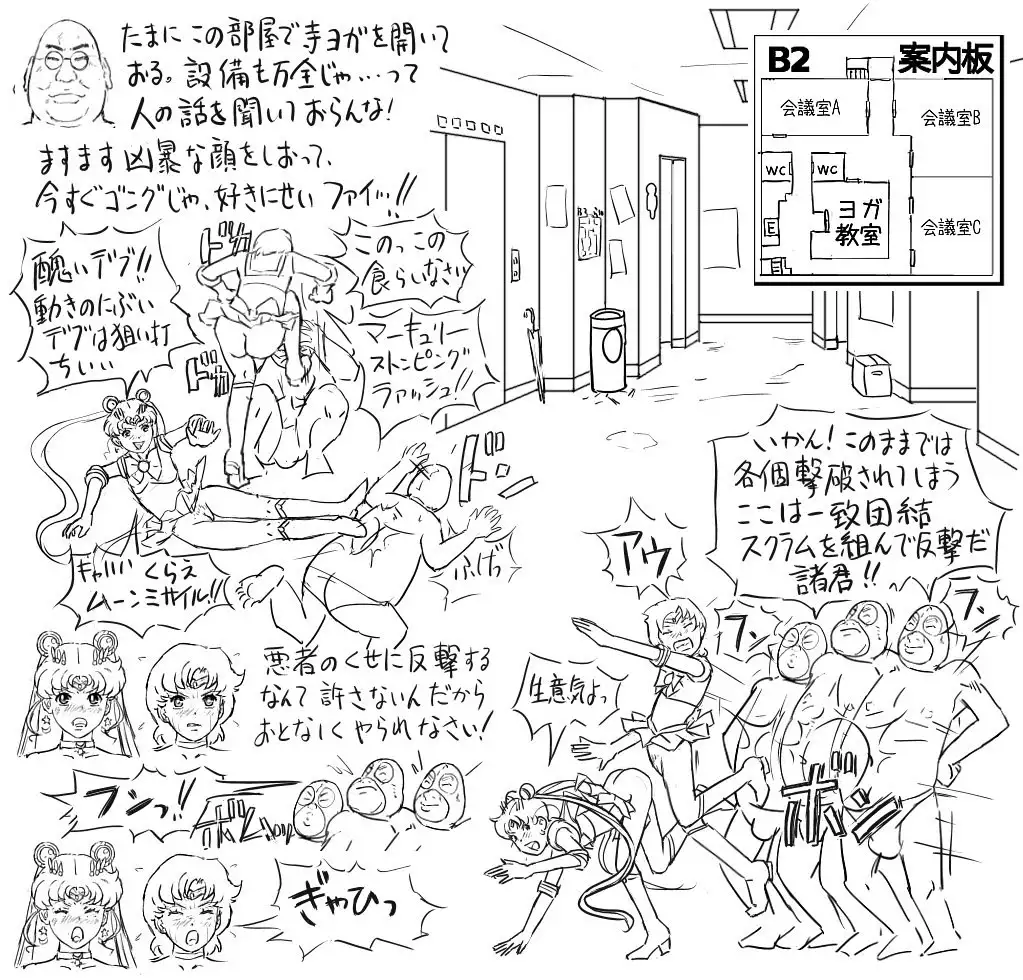 たまにこの部屋で寺ヨガを開いて
おる。設備も万全じゃ…って
人の話を聞いておらんな!
ますます凶暴な顔をしおって、
今すぐゴングじゃ、好きにせい ファイッ!!
B2 案内板
会議室A
会議室B
WC
WC
ヨガ
教室
会議室C
E
醜いデブ!!
動きのにぶい
デブは狙い打
ちぃぃ
ドドドド
このっこの
食らいなさい
マーキュリー
ストンピング
ラァッシュ!!
ドドッ
キャハハ くらえ
ムーンミサイル!!
ドゴッ
ふげっ
いかん!このままでは
各個撃破されてしまう
ここは一致団結
スクラムを組んで反撃だ
諸君!!
アウ
フンッ
フンッ
生意気よっ
ボンッ
悪者のくせに反撃する
なんて許さないんだから
おとなしくやられなさい!
フンっ!!
ぎゃひっ